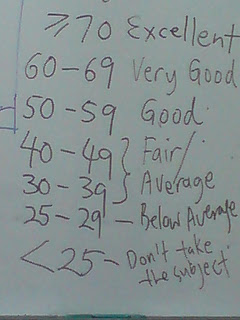 ≥70 Excellent
60-69 Very Good
50-59 Good
40-49 } Fair/
30-39 } Average
25-29 - Below Average
<25 - Don't take
the subject